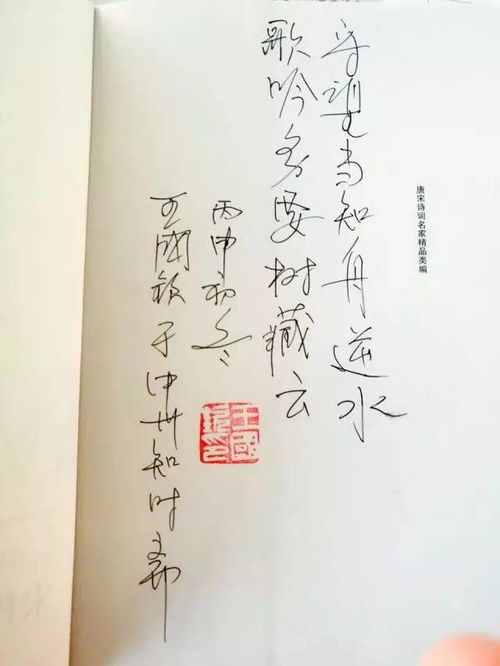 唐宋诗词名家精品类编
当知舟逆水
歌吟务要树藏云
丙申初冬
王國钦于中州知时斋
王國钦印